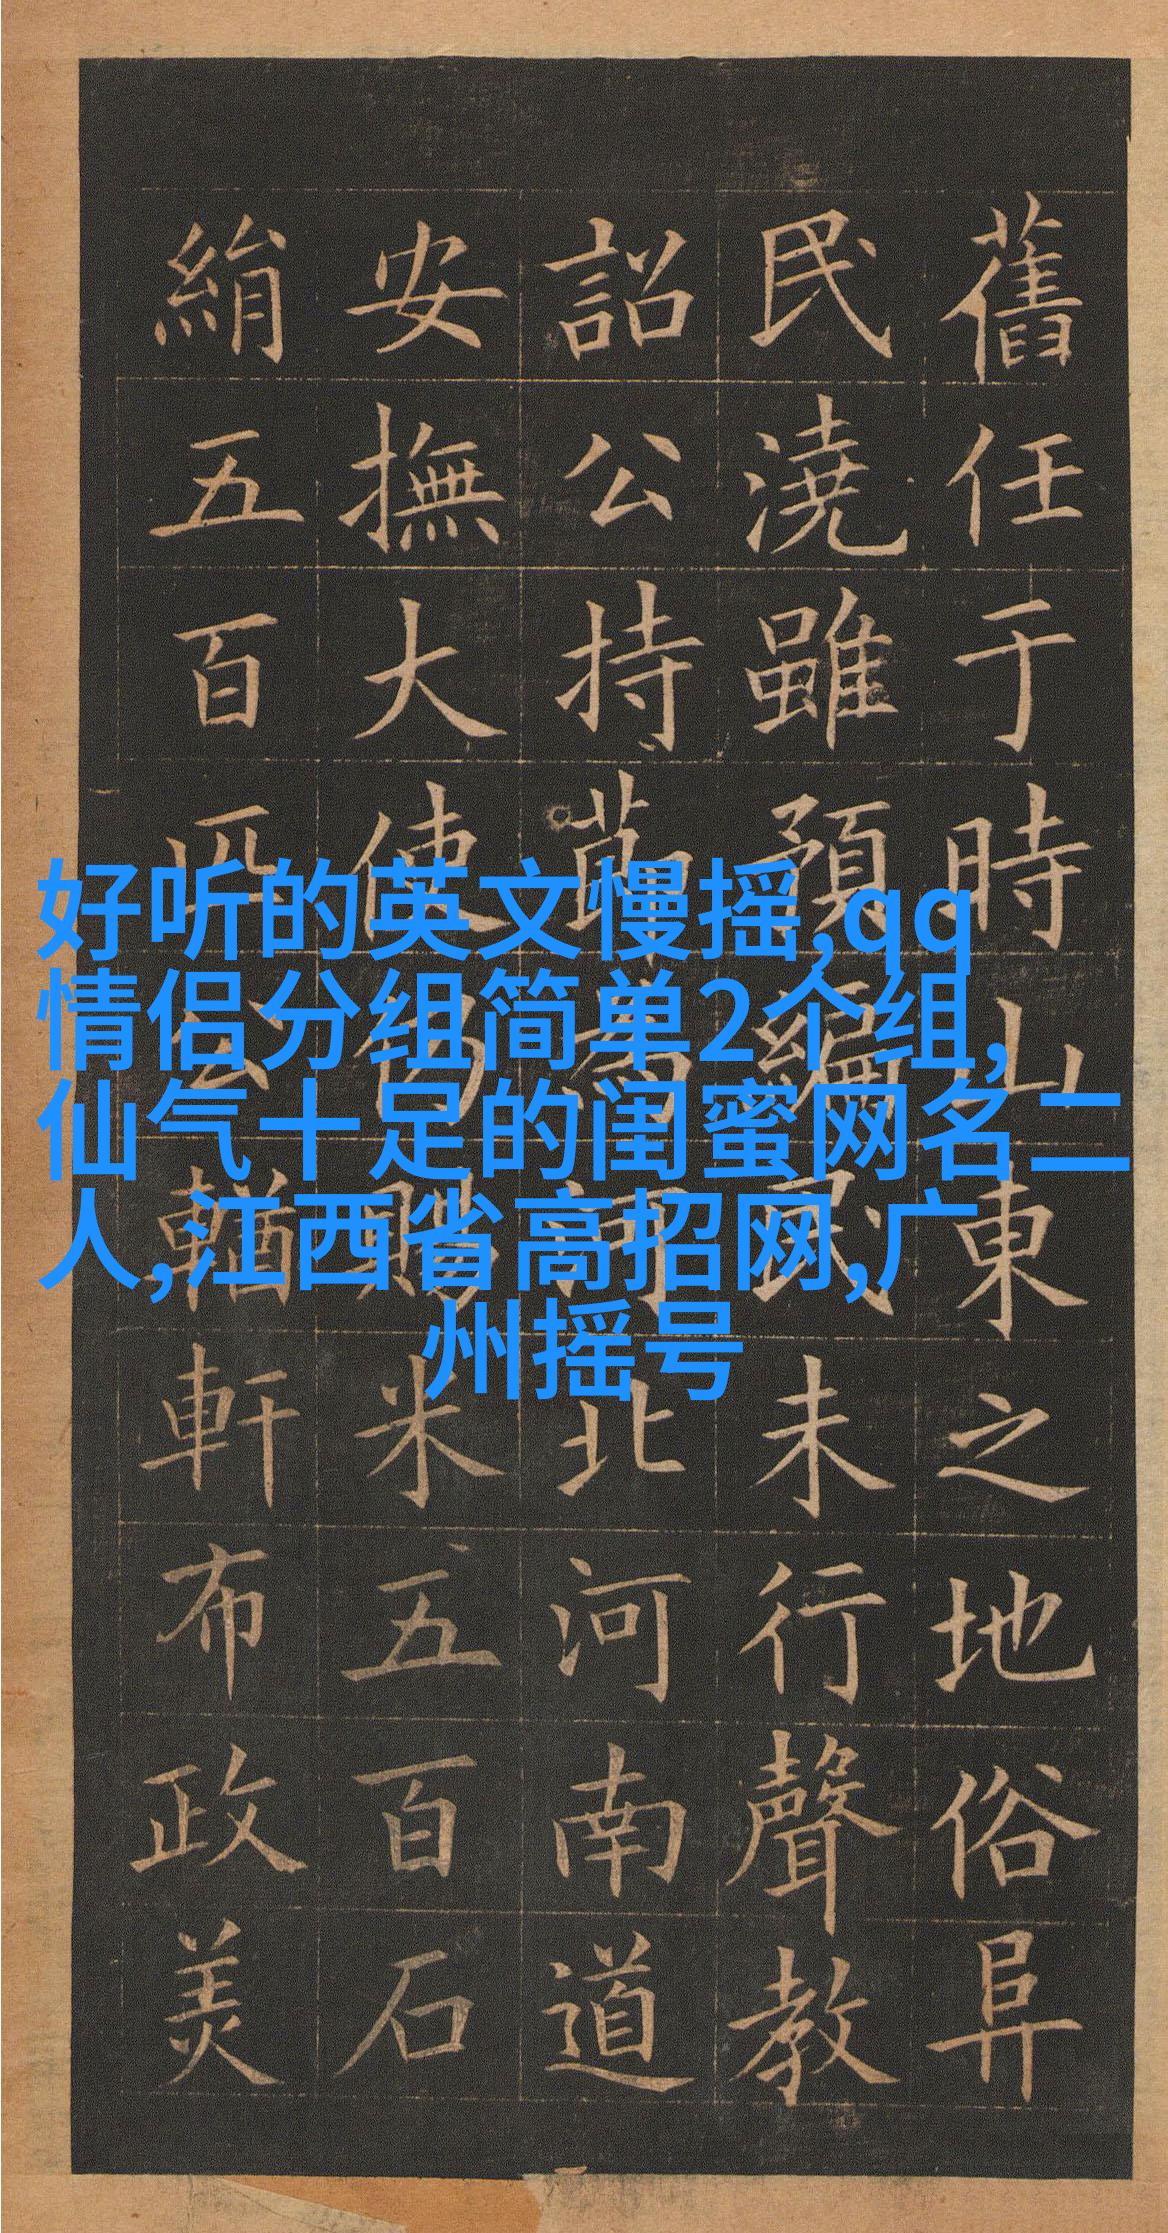 舊任于時山東之地俗阜
民澆雖預編民未行聲教
詔公持節為北河南道
安撫大使仍賜米五百石
絹五百匹公輶軒布政美
好听的英文慢摇,qq
情侣分组简单2个组,
仙气十足的闺蜜网名二
人,江西省高招网,广
州摇号